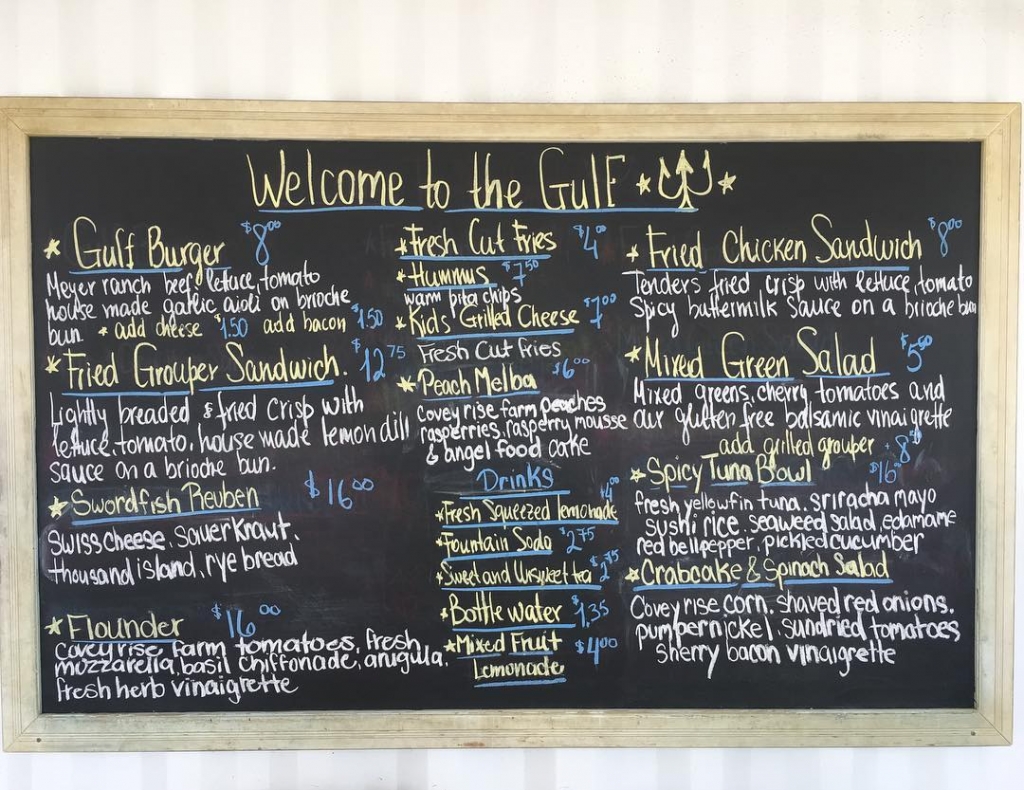 Welcome to the Gulf
* Gulf Burger $8.00
Meyer ranch beef, lettuce, tomato
house made garlic aioli on brioche
bun. * add cheese $1.50 add bacon $1.50
* Fried Grouper Sandwich. $12.75
Lightly breaded & fried crisp with
lettuce, tomato, house made lemon dill
sauce on a brioche bun.
* Swordfish Reuben $16.00
Swiss cheese, sauerkraut,
thousand island, rye bread
* Flounder $16.00
covey rise farm tomatoes, fresh
mozzarella, basil chiffonade, arugula.
fresh herb vinaigrette
* Fresh Cut Fries $4.00
* Hummus $7.50
warm pita chips
* Kids Grilled Cheese $7.00
Fresh Cut fries
* Peach Melba $6.00
Covey rise farm peaches
rasperries, rasperry mousse
& angel food cake
Drinks
* Fresh Squeezed lemonade $4.00
* Fountain Soda $2.75
* Sweet and Unsweet tea $2.75
* Bottle water $1.35
* Mixed Fruit $4.00
Lemonade
* Fried Chicken Sandwich $8.00
Tenders fried crisp with lettuce, tomato
Spicy buttermilk sauce on a brioche bun
* Mixed Green Salad $5.00
Mixed greens, cherry tomatoes and
our gluten free balsamic vinaigrette
add grilled grouper $8.00
* Spicy Tuna Bowl $16.00
fresh yellowfin tuna, sriracha mayo
sushi rice, seaweed salad, edamame
red bell pepper, pickled cucumber
* Crabcake & Spinach Salad
Covey rise corn, shaved red onions,
pumpernickel, sundried tomatoes
sherry bacon vinaigrette